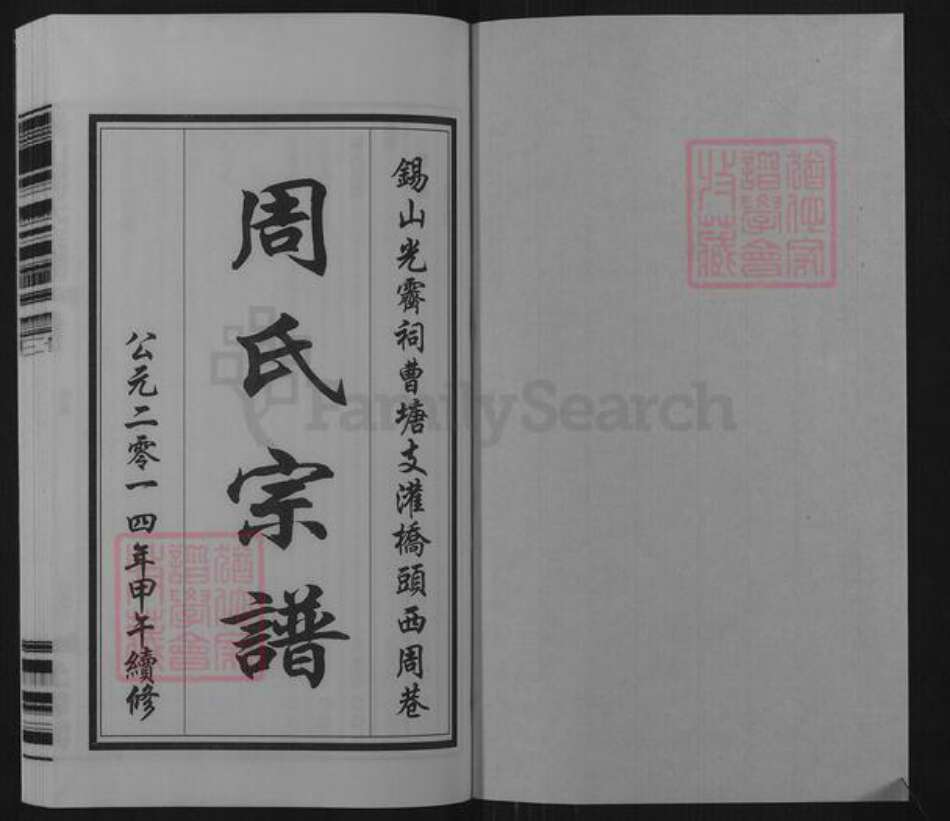 錫山光霽祠曹塘支灌橋頭西周巷
周氏宗譜
公元二零一四年甲午續修
FamilySearch